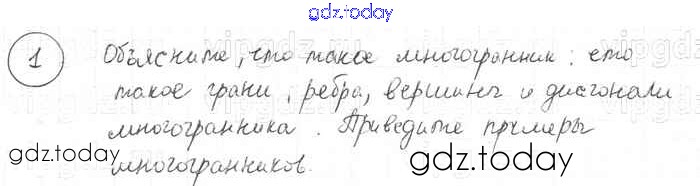 gdz.today
1 Объясните, что такое многогранник; что
такое грани, ребра, вершины и диагонали
многогранника. Приведите примеры
многогранников.
gdz.today
gdz.today